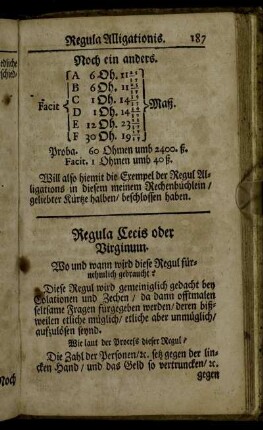 Regula Alligationis. 187
Noch ein anders.
A 6 Oh. 11
B 6 Oh. 11
Facit C 1 Oh. 14 Maß.
D 1 Oh. 14
E 12 Oh. 23
F 30 Oh. 19
Proba. 60 Ohmen umb 2400. ß.
Facit. 1 Ohmen umb 40 ß.
Will also hiemit die Exempel der Regul Al-
ligations in diesem meinem Rechenbüchlein /
geliebter Kürtze halben / beschlossen haben.
Regula Cecis oder
Virginum.
Wo und wann wird diese Regul für-
nehmlich gebraucht?
Diese Regul wird gemeiniglich gedacht bey
Colationen und Zechen / da dann offtmalen
seltsame Fragen fürgegeben werden / deren biß-
weilen etliche müglich / etliche aber unmüglich /
auffzulösen seynd.
Wie laut der Process dieser Regul /
Die Zahl der Personen / ꝛc. setz gegen der lin-
cken Hand / und das Geld so vertruncken / ꝛc.
gegen
Noch